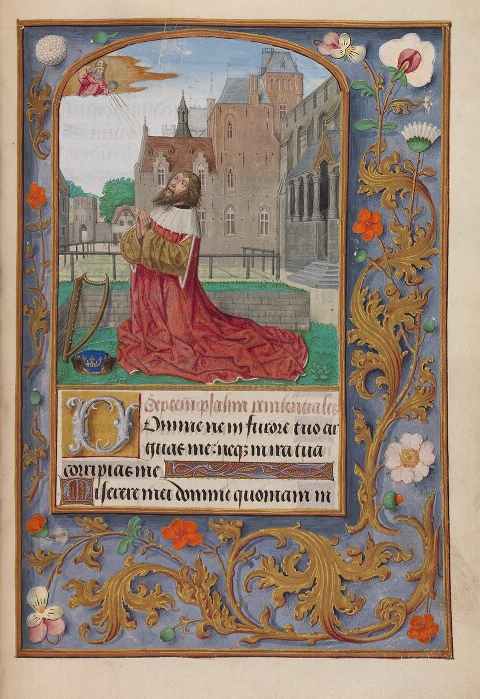 Septem psalmi penitentiales
Domine ne in furore tuo ar
guas me: neqz in ira tua
corripias me
Miserere mei domine quoniam in